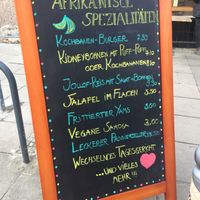 AFRIKANISCHE
SPEZIALITÄTEN
KOCHBANANEN-BURGER
KIDNEYBOHNEN MIT PUFF-PUFF
ODER KOCHBANANEN
JOLLOF-REIS MIT SALAT+BOHNEN
FALAFEL IM FLADEN 5.50
FRITTIERTER YAMS
VEGANE SAMOSA 3.00
LECKERER
WECHSELNDES TAGESGERICHT
...UND VIELES
MEHR!!!